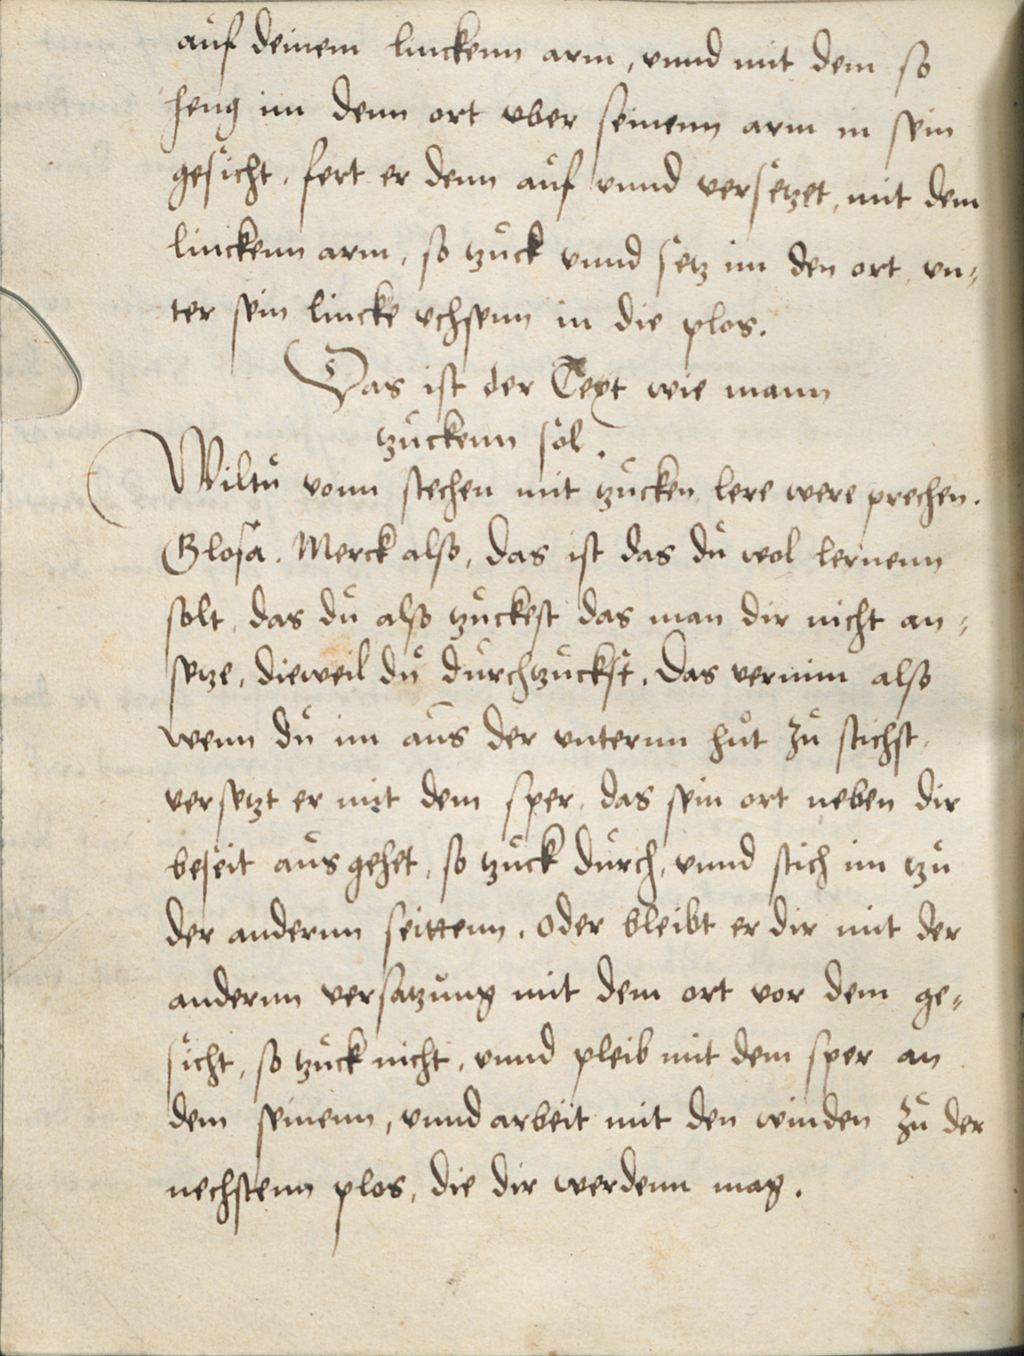 auf deinem linckenn arm, vnnd mit dem so
heng im denn ort vber seinenn arm in sein
gesicht. fert er denn auf vnnd versetzet, mit dem
linckenn arm, so tzuck vnnd setz im den ort vn⸗
ter sein lincke vchsenn in die plos.
Das ist der Text wie mann
tzuckenn sol.
Wiltu vonn stechen mit tzucken lere were prechen.
Glosa. Merck also, das ist das du wol lernenn
solt, das du also tzuckest das man dir nicht an⸗
setze, dieweil du durchtzuckst. Das vernim also
wenn du im aus der vnternn hut zu stichst,
versetzt er mit dem sper, das sein ort neben dir
beseit aus gehet, so tzuck durch, vnnd stich im tzu
der andernn seittenn. oder bleibt er dir mit der
andernn versatzung mit dem ort vor dem ge⸗
sicht, so tzuck nicht, vnnd pleib mit dem sper an
dem seinenn, vnnd arbeit mit den winden zu der
nechstenn plos, die dir werdenn mag.